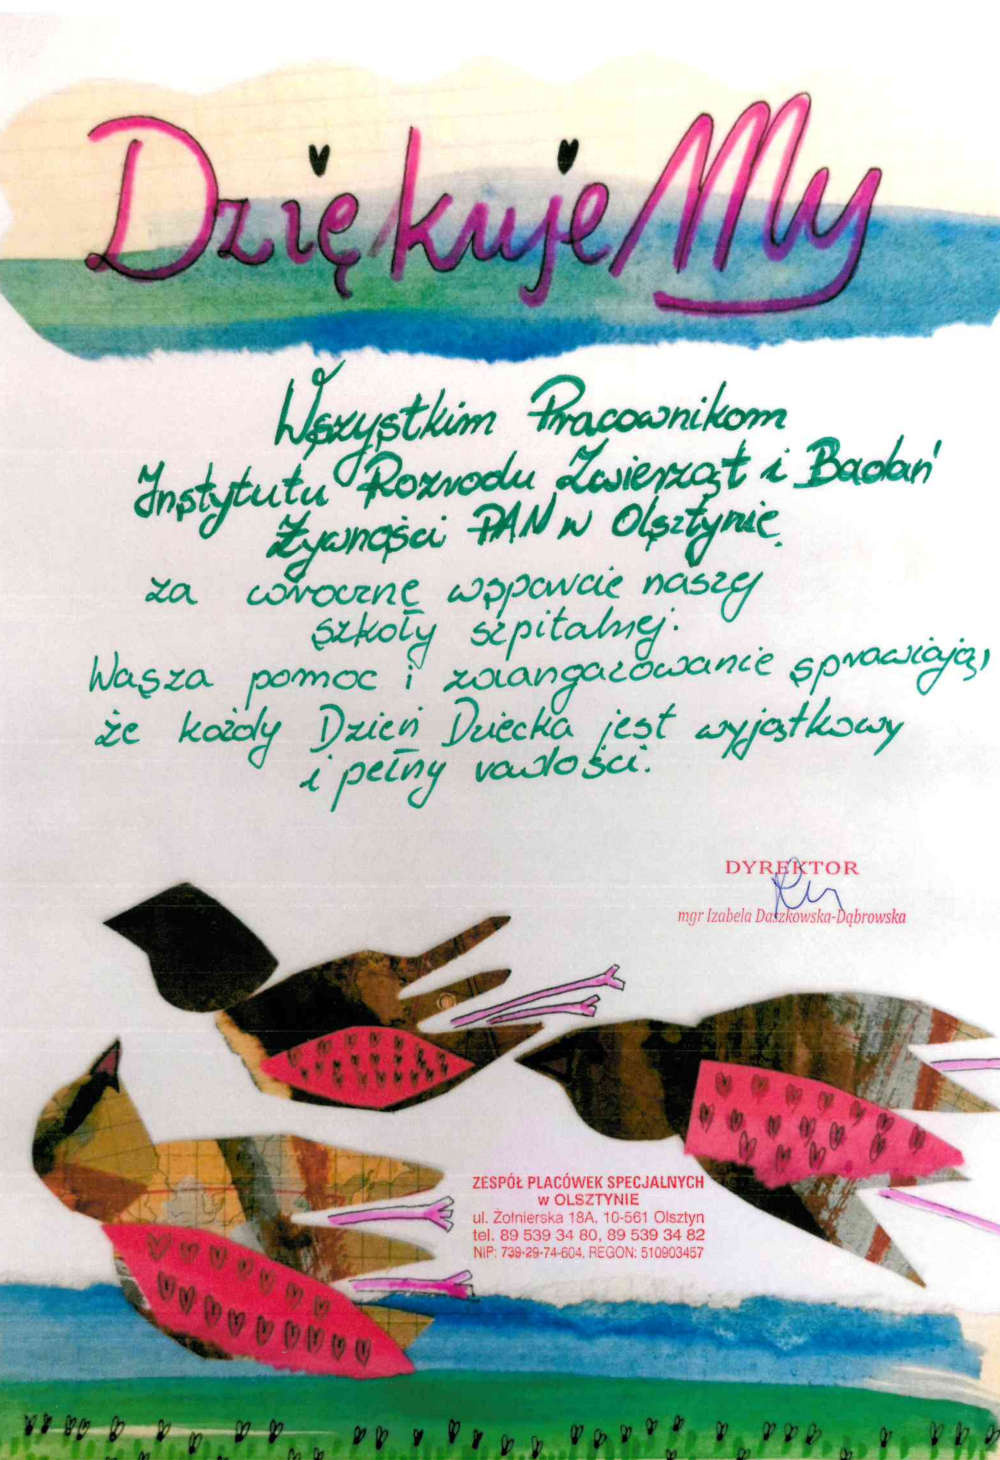 DziękujeMy
Wszystkim Pracownikom
Instytutu Rozrodu Zwierząt i Badań
Żywności PAN w Olsztynie
za coroczne wsparcie naszej
szkoły szpitalnej.
Wasza pomoc i zaangażowanie sprawiają,
że każdy Dzień Dziecka jest wyjątkowy
i pełny radości.
DYREKTOR
mgr Izabela Daszkowska-Dąbrowska
ZESPÓŁ PLACÓWEK SPECJALNYCH
w OLSZTYNIE
ul. Żołnierska 18A, 10-561 Olsztyn
tel. 89 539 34 80, 89 539 34 82
NIP: 739-29-74-604, REGON: 510903457